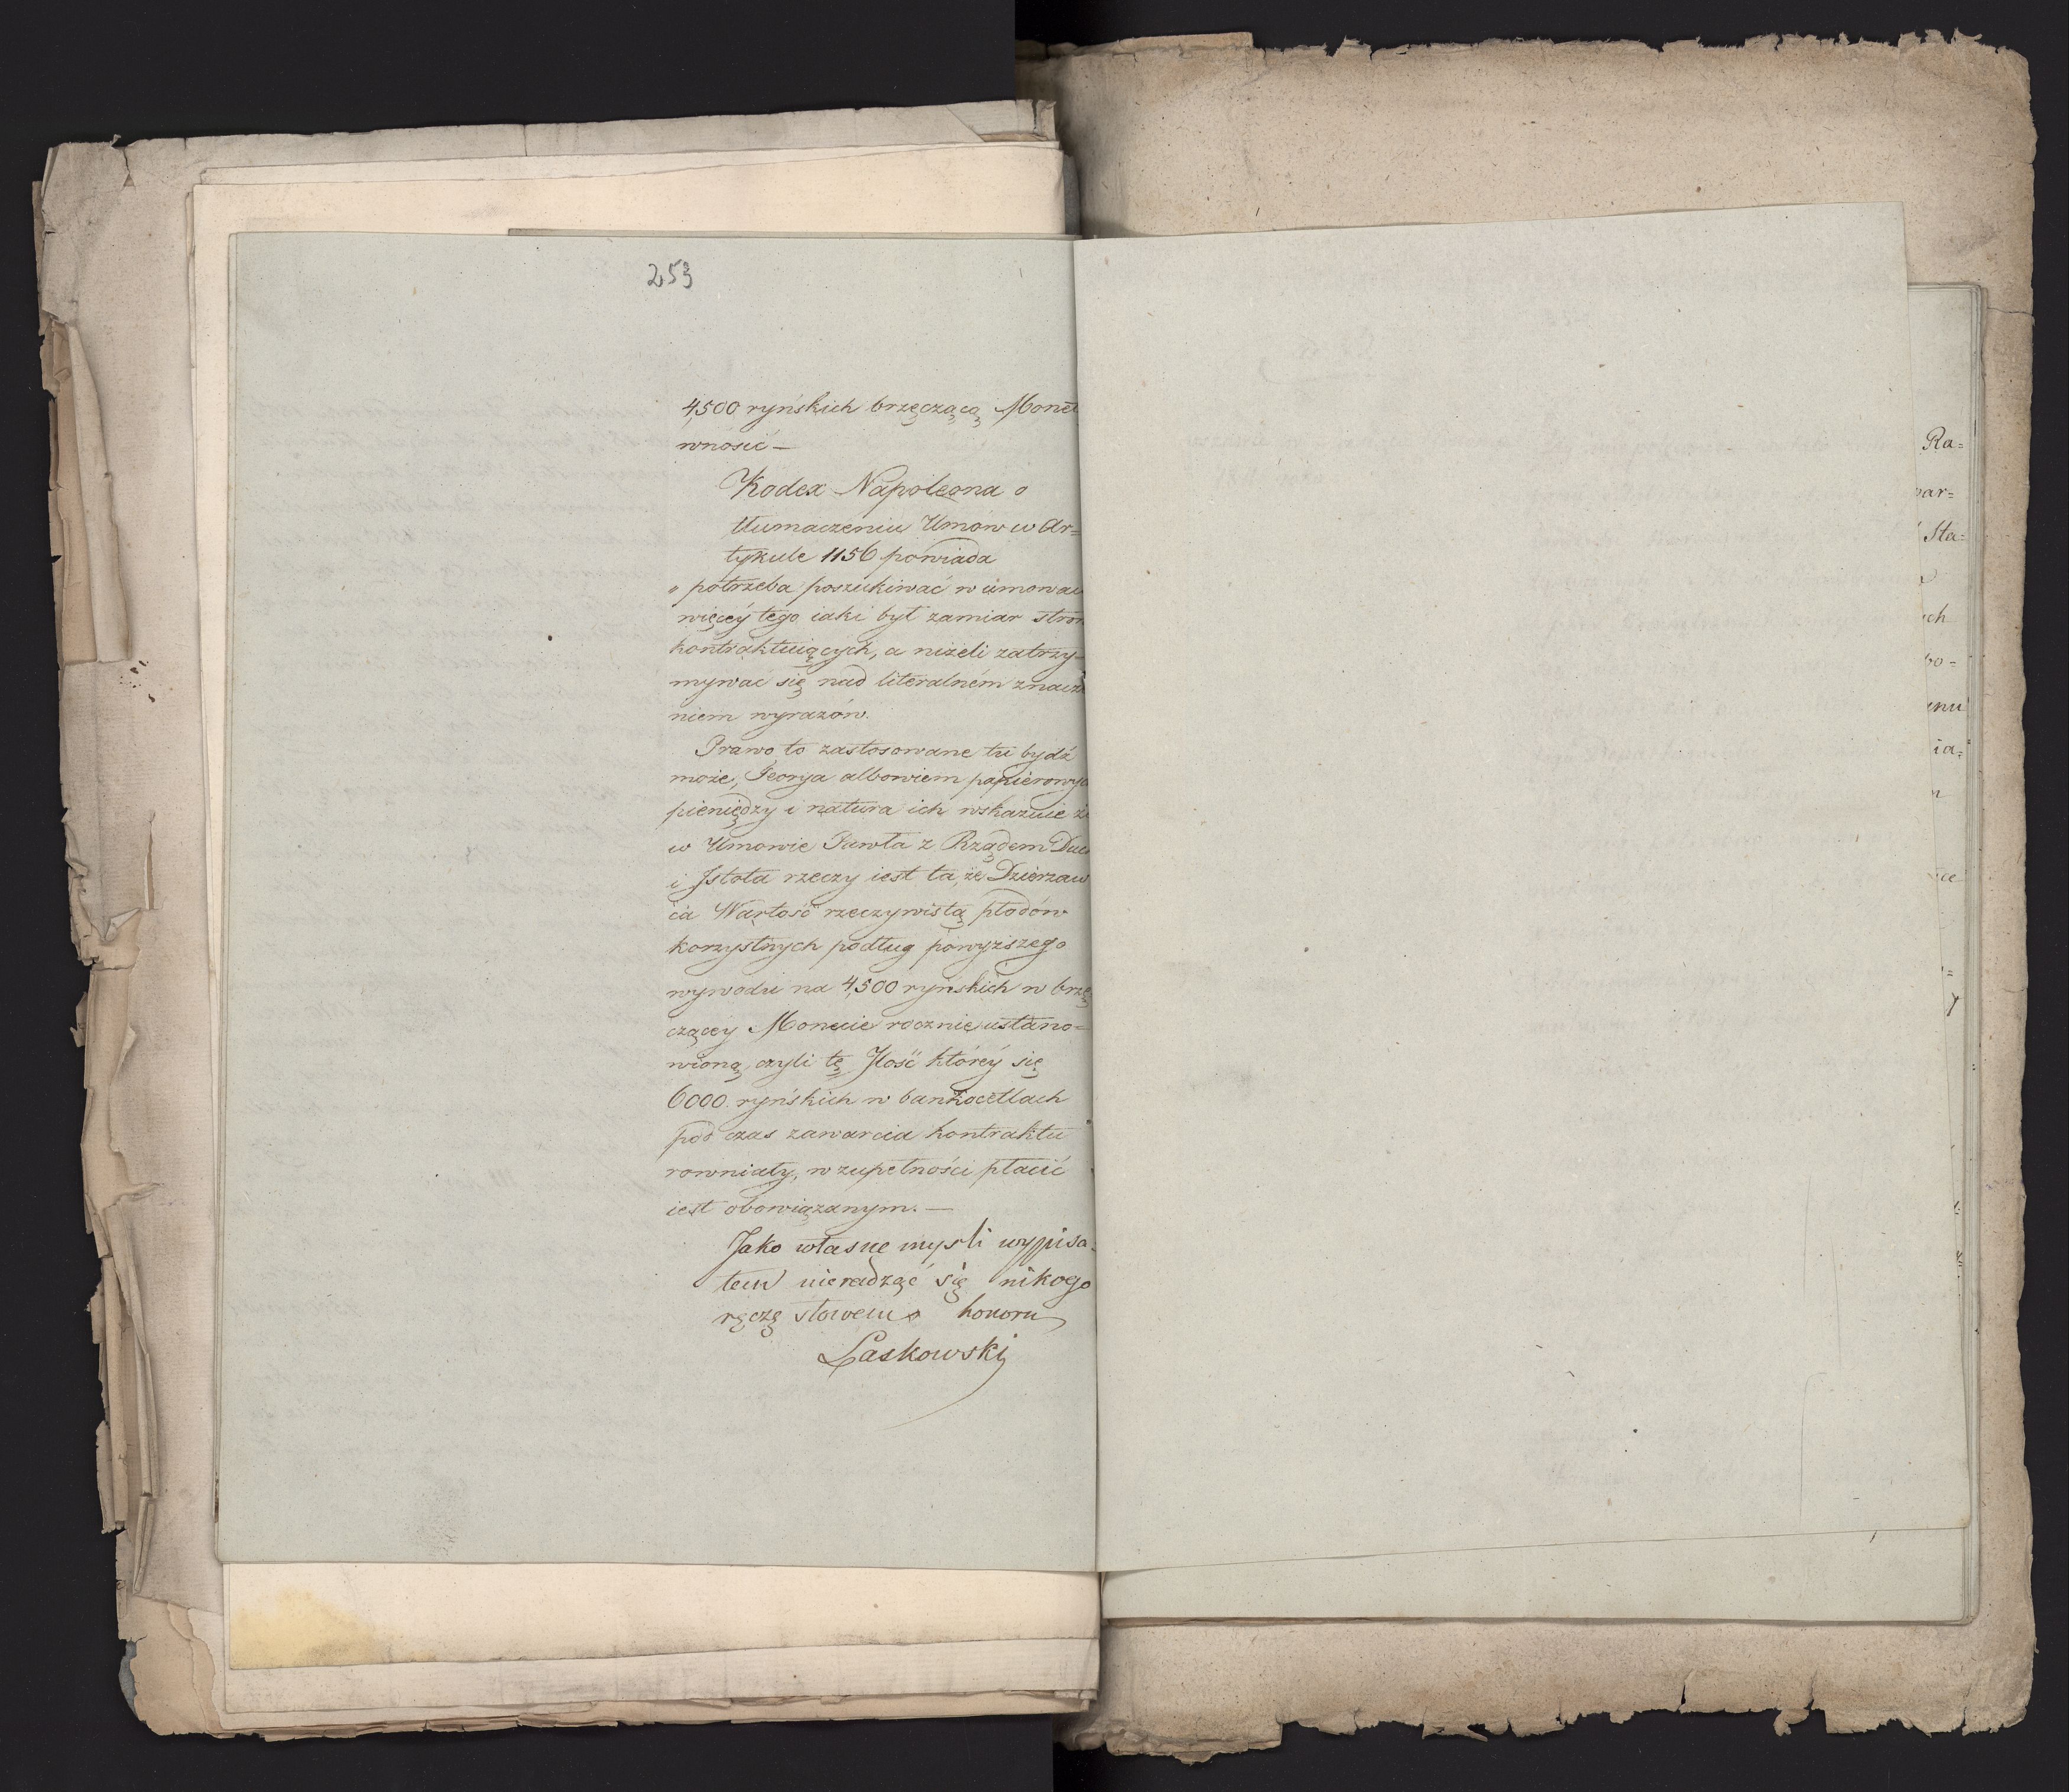 253
4,500 ryńskich brzęczącą Monet
wnosić —
Kodex Napoleona o
tłumaczeniu Umów w Ar=
tykule 1156 powiada
„ potrzeba poszukiwać w umowac
więcéy tego iaki był zamiar stron
kontraktuiących, a niżeli zatrzy-
mywac się nad literalném znacze
niem wyrazów.
Prawo to zastosowane tu bydź
może, Teorya albowiem papierowyc
pieniędzy i natura ich wskazuie że
w Umowie Pawła z Rządem Duch
i Jstota rzeczy iest ta, że Dzierżaw
ca Wartość rzeczywistą płodów
korzystnych podług powyższego
wywodu na 4,500 ryńskich w brzę
czącey Monecie rocznie ustano=
wioną, czyli tę Jlość któréy się
6000 ryńskich w bankocetlach
pod czas zawarcia kontraktu
rowniały, w zupełności płacić
iest obowiązanym. —
Jako własne mysli wypisa=
łem nieradząć się nikogo
ręczę słowem honoru
Laskowski
Ra=
par=
Sta=
ch
bo=
mu
ia=